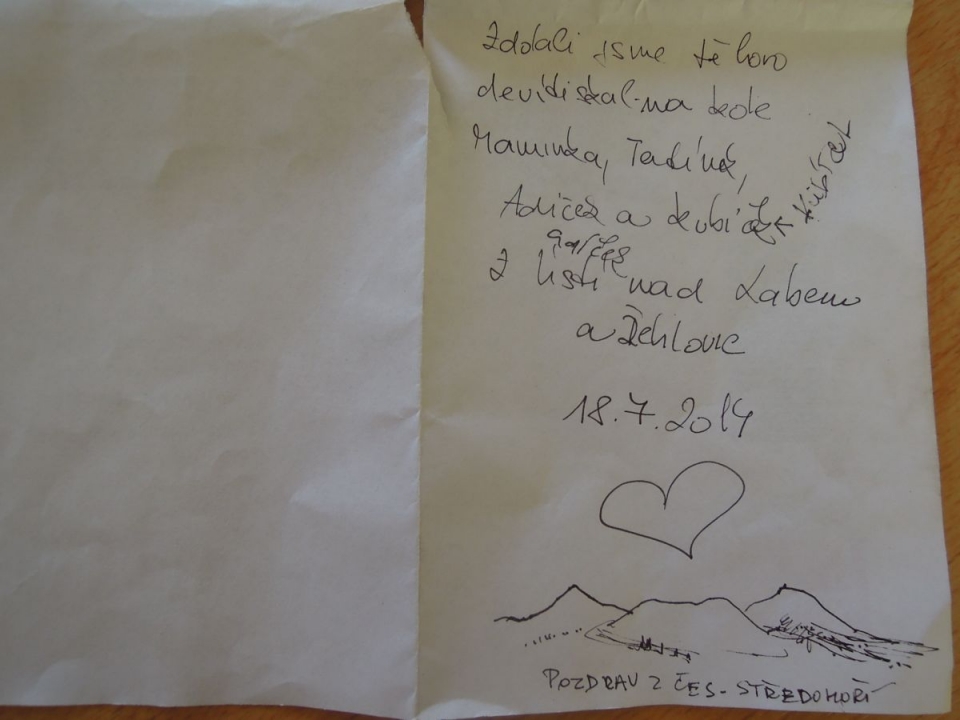 Zdolali jsme tě horo
devítiskal-na kole
Maminka, Taťínek,
Adíček a Kubíček ←
Z Ústí nad Labem
a Řehlovic
18.7.2014
POZDRAV Z ČES. STŘEDOHOŘÍ